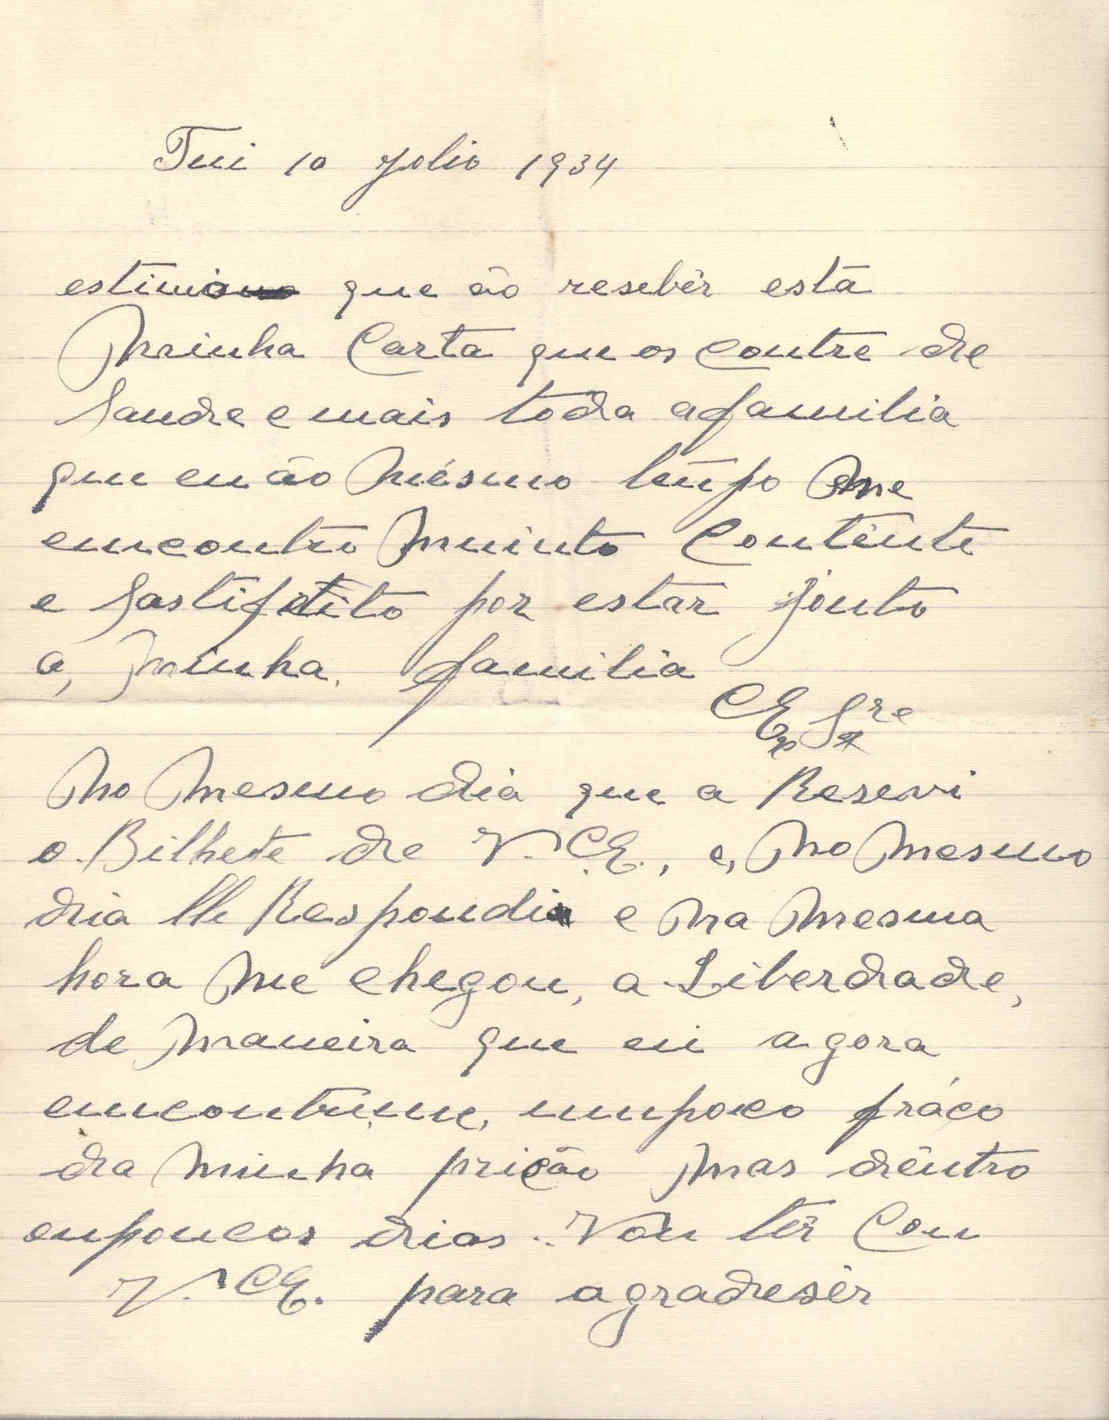 Tui 10 Jolio 1934
estimo que ão resebêr está
Minha Carta que os contre de
Saudre e mais toda afamilia
que eu ão Mésmo têmpo me
emcontro Muinto Contênte
e Sastifeito por estar Jonto
a, minha, familia
Ex Sre
No Mesmo dia que a Resevi
o Bilhete de V. E., e, No Mesmo
dia lle Respondi e Na Mesma
hora Me chegou, a Liberdade,
de Maneira que eu agora
emcontrume, umpoco fráco
da Minha prição Mas dêntro
enpoucos dias. Vou têr Com
V. E. para agradesêr